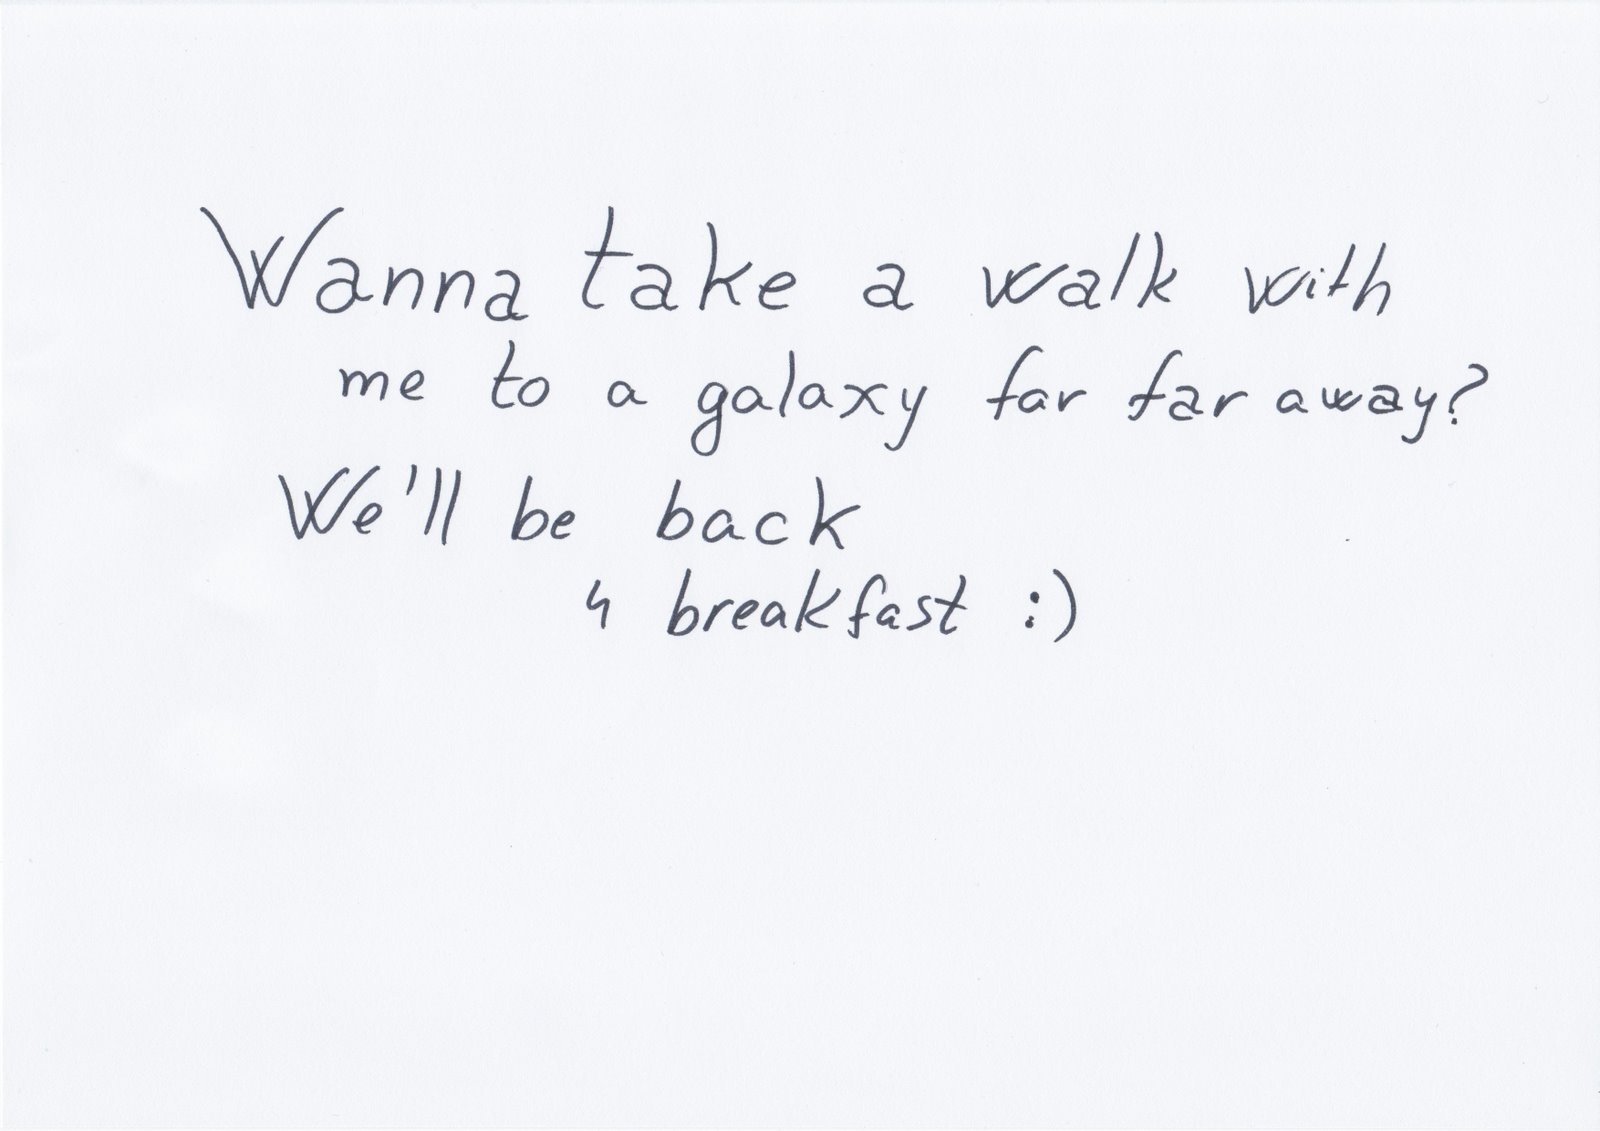 Wanna take a walk with
me to a galaxy far far away?
We'll be back
4 breakfast :)